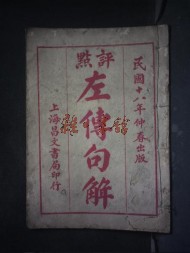 民國十八年仲春出版
評點
左傳句解
上海昌文書局印行